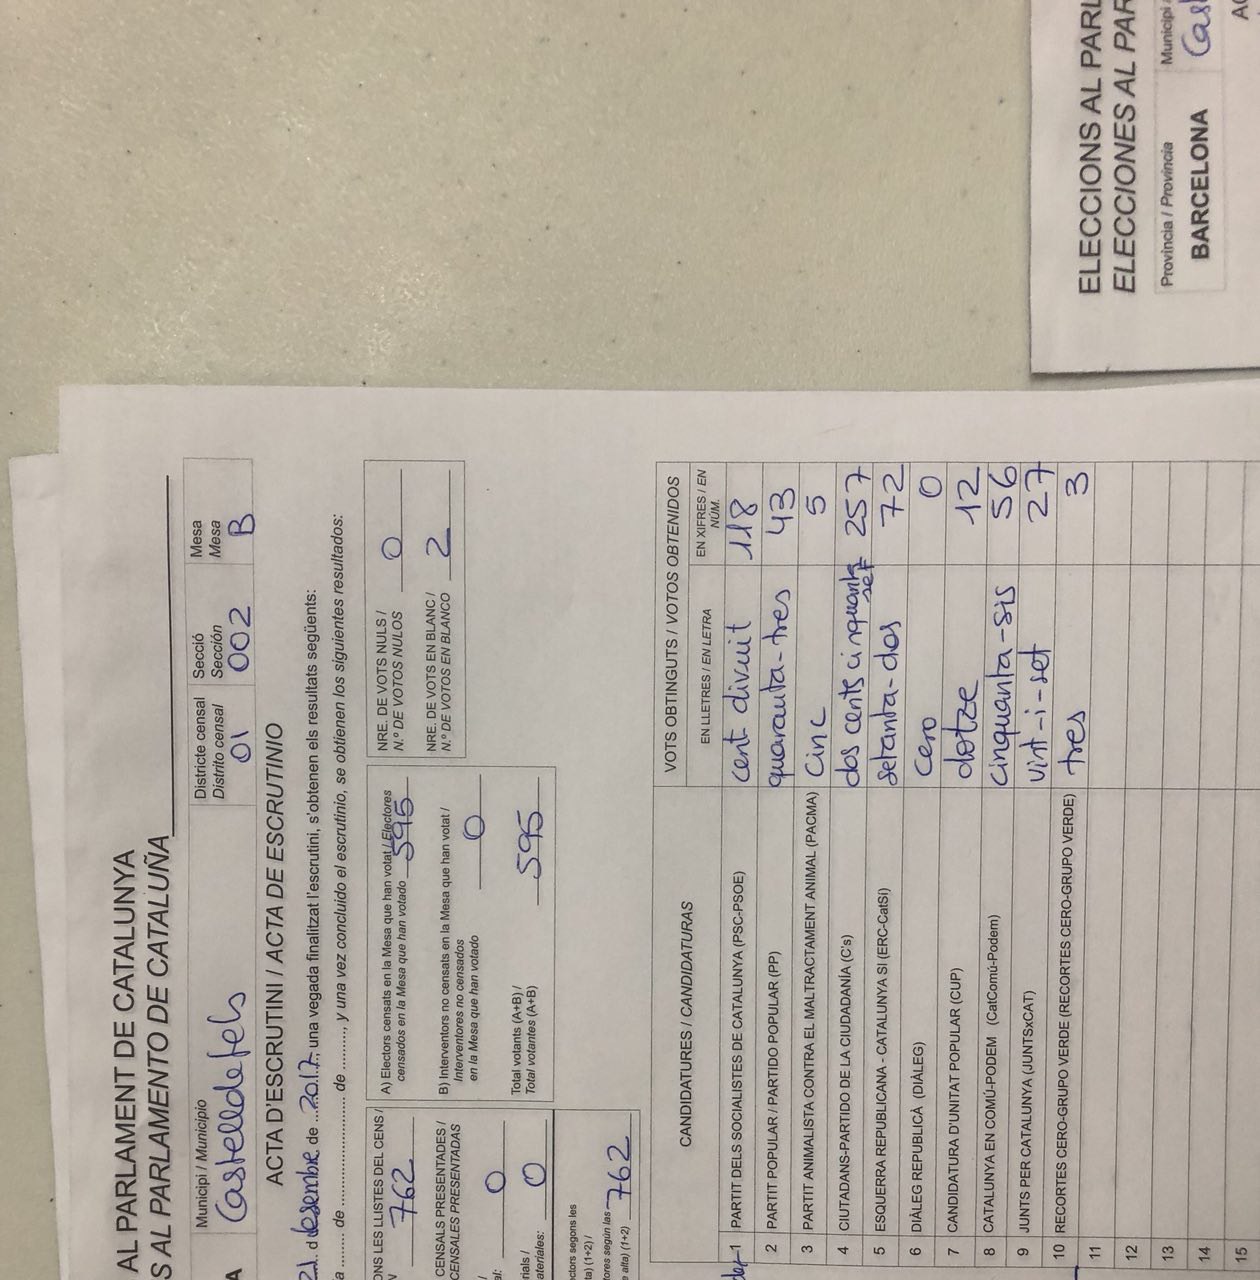 AL PARLAMENT DE CATALUNYA
S AL PARLAMENTO DE CATALUÑA
A
Municipi / Municipio
Castelldefels
Districte censal
Distrito censal
01
Secció
Sección
002
Mesa
Mesa
B
ACTA D'ESCRUTINI / ACTA DE ESCRUTINIO
21 d desembre de 2017, una vegada finalitzat l'escrutini, s'obtenen els resultats següents:
de de , y una vez concluido el escrutinio, se obtienen los siguientes resultados:
ONS LES LLISTES DEL CENS /
N 762
CENSALS PRESENTADES /
CENSALES PRESENTADAS
al: 0
rials /
ateriales: 0
ctors segons les
ta) (1+2) /
tores según las
e alta) (1+2) 762
A) Electors censats en la Mesa que han votat / Electores
censados en la Mesa que han votado 595
B) Interventors no censats en la Mesa que han votat /
Interventores no censados
en la Mesa que han votado 0
Total votants (A+B) /
Total votantes (A+B) 595
NRE. DE VOTS NULS /
N.º DE VOTOS NULOS 0
NRE. DE VOTS EN BLANC /
N.º DE VOTOS EN BLANCO 2
CANDIDATURES / CANDIDATURAS
VOTS OBTINGUTS / VOTOS OBTENIDOS
EN LLETRES / EN LETRA
EN XIFRES / EN
NÚM.
1 PARTIT DELS SOCIALISTES DE CATALUNYA (PSC-PSOE) cent divuit 118
2 PARTIT POPULAR / PARTIDO POPULAR (PP) quaranta-tres 43
3 PARTIT ANIMALISTA CONTRA EL MALTRACTAMENT ANIMAL (PACMA) cinc 5
4 CIUTADANS-PARTIDO DE LA CIUDADANÍA (C's) dos cents cinquanta set 257
5 ESQUERRA REPUBLICANA - CATALUNYA SÍ (ERC-CatSí) setanta-dos 72
6 DIÀLEG REPUBLICÀ (DIÀLEG) cero 0
7 CANDIDATURA D'UNITAT POPULAR (CUP) dotze 12
8 CATALUNYA EN COMÚ-PODEM (CatComú-Podem) cinquanta-sis 56
9 JUNTS PER CATALUNYA (JUNTSxCAT) vint-i-set 27
10 RECORTES CERO-GRUPO VERDE (RECORTES CERO-GRUPO VERDE) tres 3
11
12
13
14
15
ELECCIONS AL PARL
ELECCIONES AL PAR
Provincia / Província
BARCELONA
Municipi /
Cast
AC